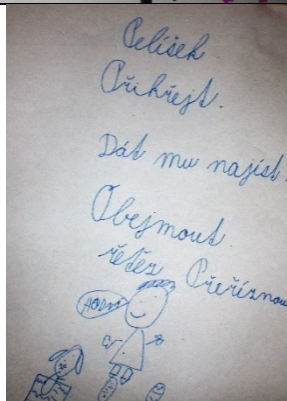 Pelíšek
Přihřejt.
Dát mu najíst.
Obejmout.
řetěz Přeříznou